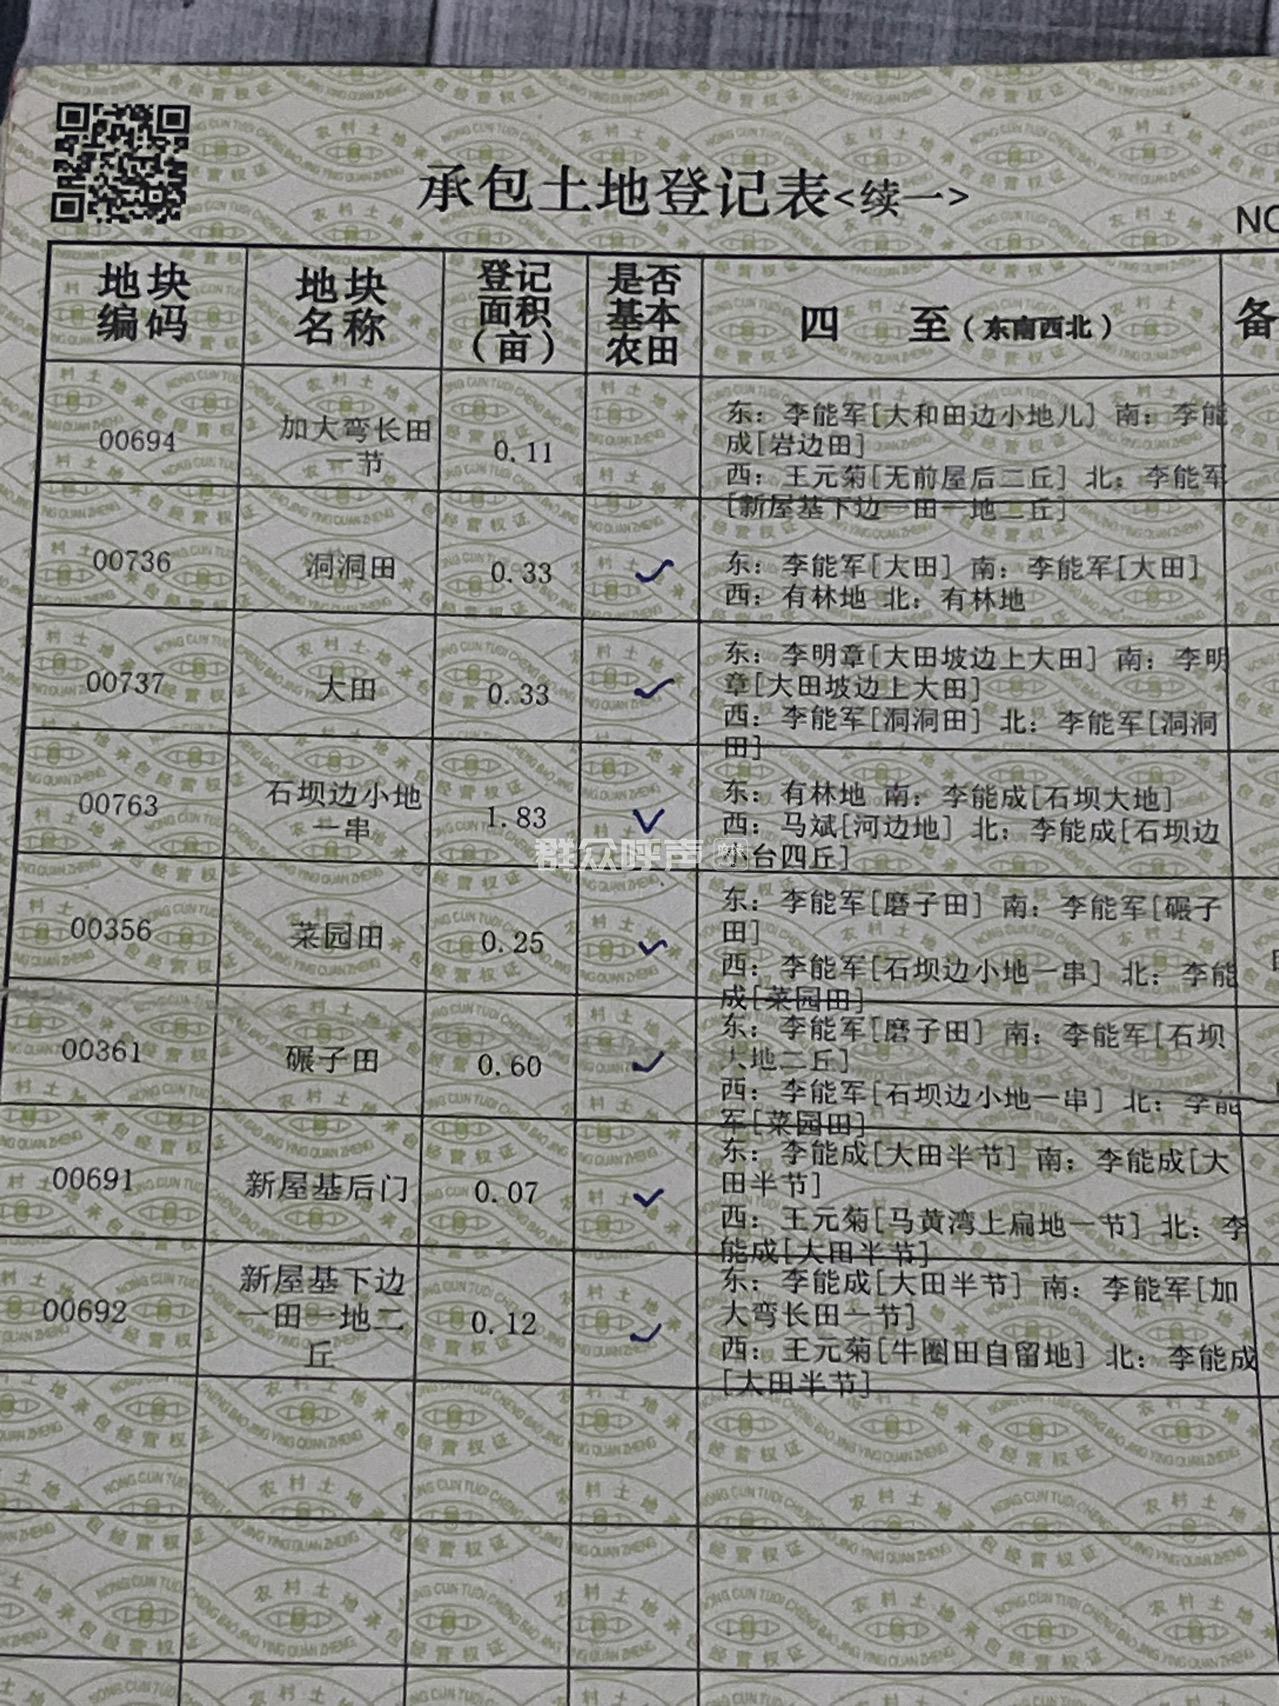 承包土地登记表<续一>
NO
地块编码
地块名称
登记面积(亩)
是否基本农田
四 至(东南西北)
备
00694
加大弯长田
一节
0.11
东: 李能军[大和田边小地儿] 南: 李能
成[岩边田]
西: 王元菊[无前屋后二丘] 北: 李能军
[新屋基下边一田一地二丘]
00736
洞洞田
0.33
✓
东: 李能军[大田] 南: 李能军[大田]
西: 有林地 北: 有林地
00737
大田
0.33
✓
东: 李明章[大田坡边上大田] 南: 李明
章[大田坡边上大田]
西: 李能军[洞洞田] 北: 李能军[洞洞
田]
00763
石坝边小地
一串
1.83
✓
东: 有林地 南: 李能成[石坝大地]
西: 马斌[河边地] 北: 李能成[石坝边
小台四丘]
群众呼声
00356
菜园田
0.25
✓
东: 李能军[磨子田] 南: 李能军[碾子
田]
西: 李能军[石坝边小地一串] 北: 李能
成[菜园田]
00361
碾子田
0.60
✓
东: 李能军[磨子田] 南: 李能军[石坝
大地二丘]
西: 李能军[石坝边小地一串] 北: 李能
军[菜园田]
00691
新屋基后门
0.07
✓
东: 李能成[大田半节] 南: 李能成[大
田半节]
西: 王元菊[马黄湾上扁地一节] 北: 李
能成[大田半节]
00692
新屋基下边
一田一地二
丘
0.12
✓
东: 李能成[大田半节] 南: 李能军[加
大弯长田一节]
西: 王元菊[牛圈田自留地] 北: 李能成
[大田半节]